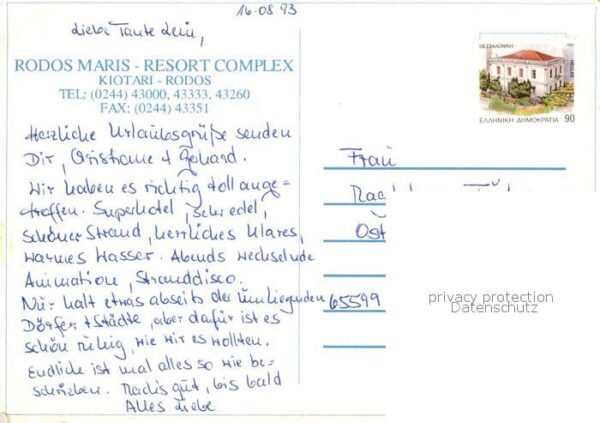 16.08.93
Liebe Tante Leni,
RODOS MARIS - RESORT COMPLEX
KIOTARI - RODOS
TEL: (0244) 43000, 43333, 43260
FAX: (0244) 43351
Herzliche Urlaubsgrüße senden
Dir, Christiane + Gerhard.
Wir haben es richtig toll ange-
troffen. Superhotel, sehr edel,
schöner Strand, herrliches klares,
warmes Wasser. Abends wechselnde
Animation, Stranddisco.
Nur halt etwas abseits der umliegenden
Dörfer + Städte, aber dafür ist es
schön ruhig, wie wir es wollten.
Endlich ist mal alles so wie be-
schrieben. Machs gut, bis bald
Alles Liebe
ΘΕΣΣΑΛΟΝΙΚΗ
HELLAS
ΕΛΛΗΝΙΚΗ ΔΗΜΟΚΡΑΤΙΑ 90
Frau
Ost
65599
privacy protection
Datenschutz